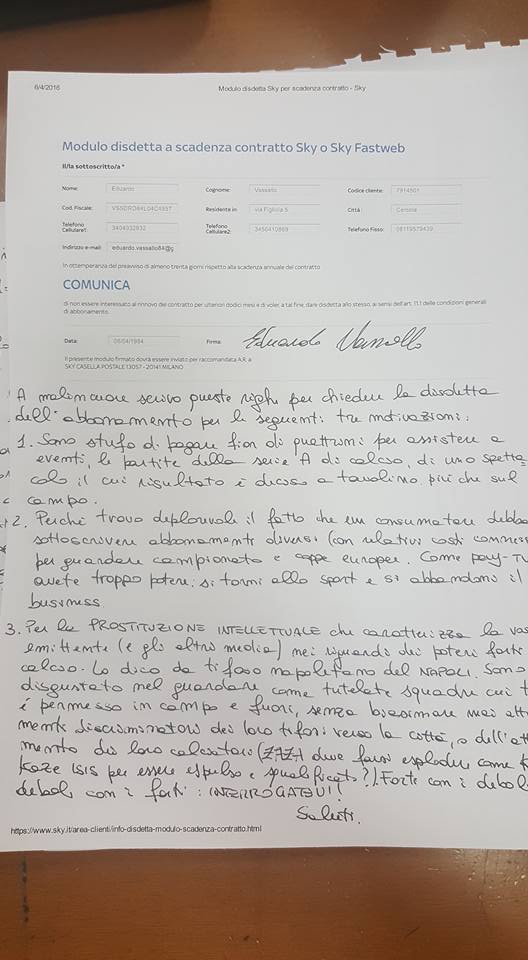 6/4/2018 Modulo disdetta Sky per scadenza contratto - Sky
Modulo disdetta a scadenza contratto Sky o Sky Fastweb
Il/la sottoscritto/a *
Nome: Eduardo Cognome: Vassallo Codice cliente: 7914501
Cod. Fiscale: Residente in via Figliola 5 Città: Cercola
Telefono Cellulare1: 3404032832 Telefono Cellulare2: 3450410869 Telefono Fisso: 08119579439
Indirizzo e-mail: eduardo.vassallo84@g
In ottemperanza del preavviso di almeno trenta giorni rispetto alla scadenza annuale del contratto
COMUNICA
di non essere interessato al rinnovo del contratto per ulteriori dodici mesi e di voler, a tal fine, dare disdetta allo stesso, ai sensi dell'art. 11.1 delle condizioni generali
di abbonamento.
Data: 06/04/1984 Firma: Eduardo Vassallo
Il presente modulo firmato dovrà essere inviato per raccomandata A.R. a
SKY CASELLA POSTALE 13057 - 20141 MILANO
A malincuore scrivo queste righe per chiedere la disdetta
dell'abbonamento per le seguenti tre motivazioni:
1. Sono stufo di pagare fior di quattrini per assistere a
eventi, le partite della serie A di calcio, di uno spetta
colo il cui risultato è deciso a tavolino più che sul
campo.
2. Perché trovo deplorevole il fatto che un consumatore debba
sottoscrivere abbonamenti diversi (con relativi costi connessi
per guardare campionato e coppe europee. Come pay-TV
avete troppo potere: si torni allo sport e si abbandoni il
business
3. Per la PROSTITUZIONE INTELLETTUALE che caratterizza la vos
emittente (e gli altri media) nei riguardi dei poteri forti
calcio. Lo dico da tifoso napoletano del NAPOLI. Sono
disgustato nel guardare come tutelate squadre cui t
è permesso in campo e fuori, senza biasimare mai att
menti discriminatori dei loro tifosi verso la città, o dell'att
mento dei loro calciatori (deve farsi esplodere come K
Kaze ISIS per essere espulso e squalificato?). Forti con i debol
deboli con i forti: INTERROGATEVI!
Saluti.
https://www.sky.it/area-clienti/info-disdetta-modulo-scadenza-contratto.html